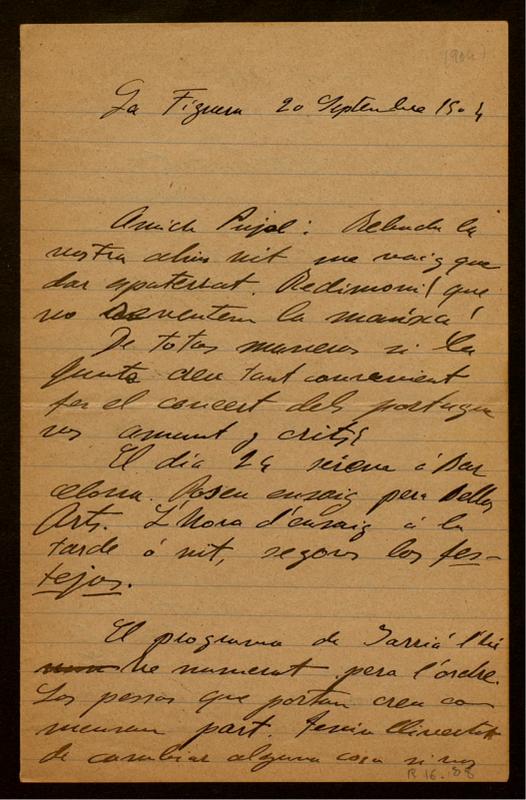 1904)
La Figuera 20 Septembre 1904
Amich Pujol: Rebuda la
vostra ahir nit me vaig que
dar apaterrat. Redimoni! que
no reventem la maruxa!
De totas maneras si la
Junta creu tant convenient
fer el concert dels portugue
sos amunt y crits!
El dia 24 seré á Bar
celona. Poseu ensaig pera Bellas
Arts. L'Hora d'ensaig á la
tarde ó nit, segons los fes-
tejos.
El programa de Sarriá l'hi
he numerat pera l'ordre.
Las pessas que portan creu co
mensan part. Teniu llivertat
de cambiar alguna cosa si vos
B 16.188